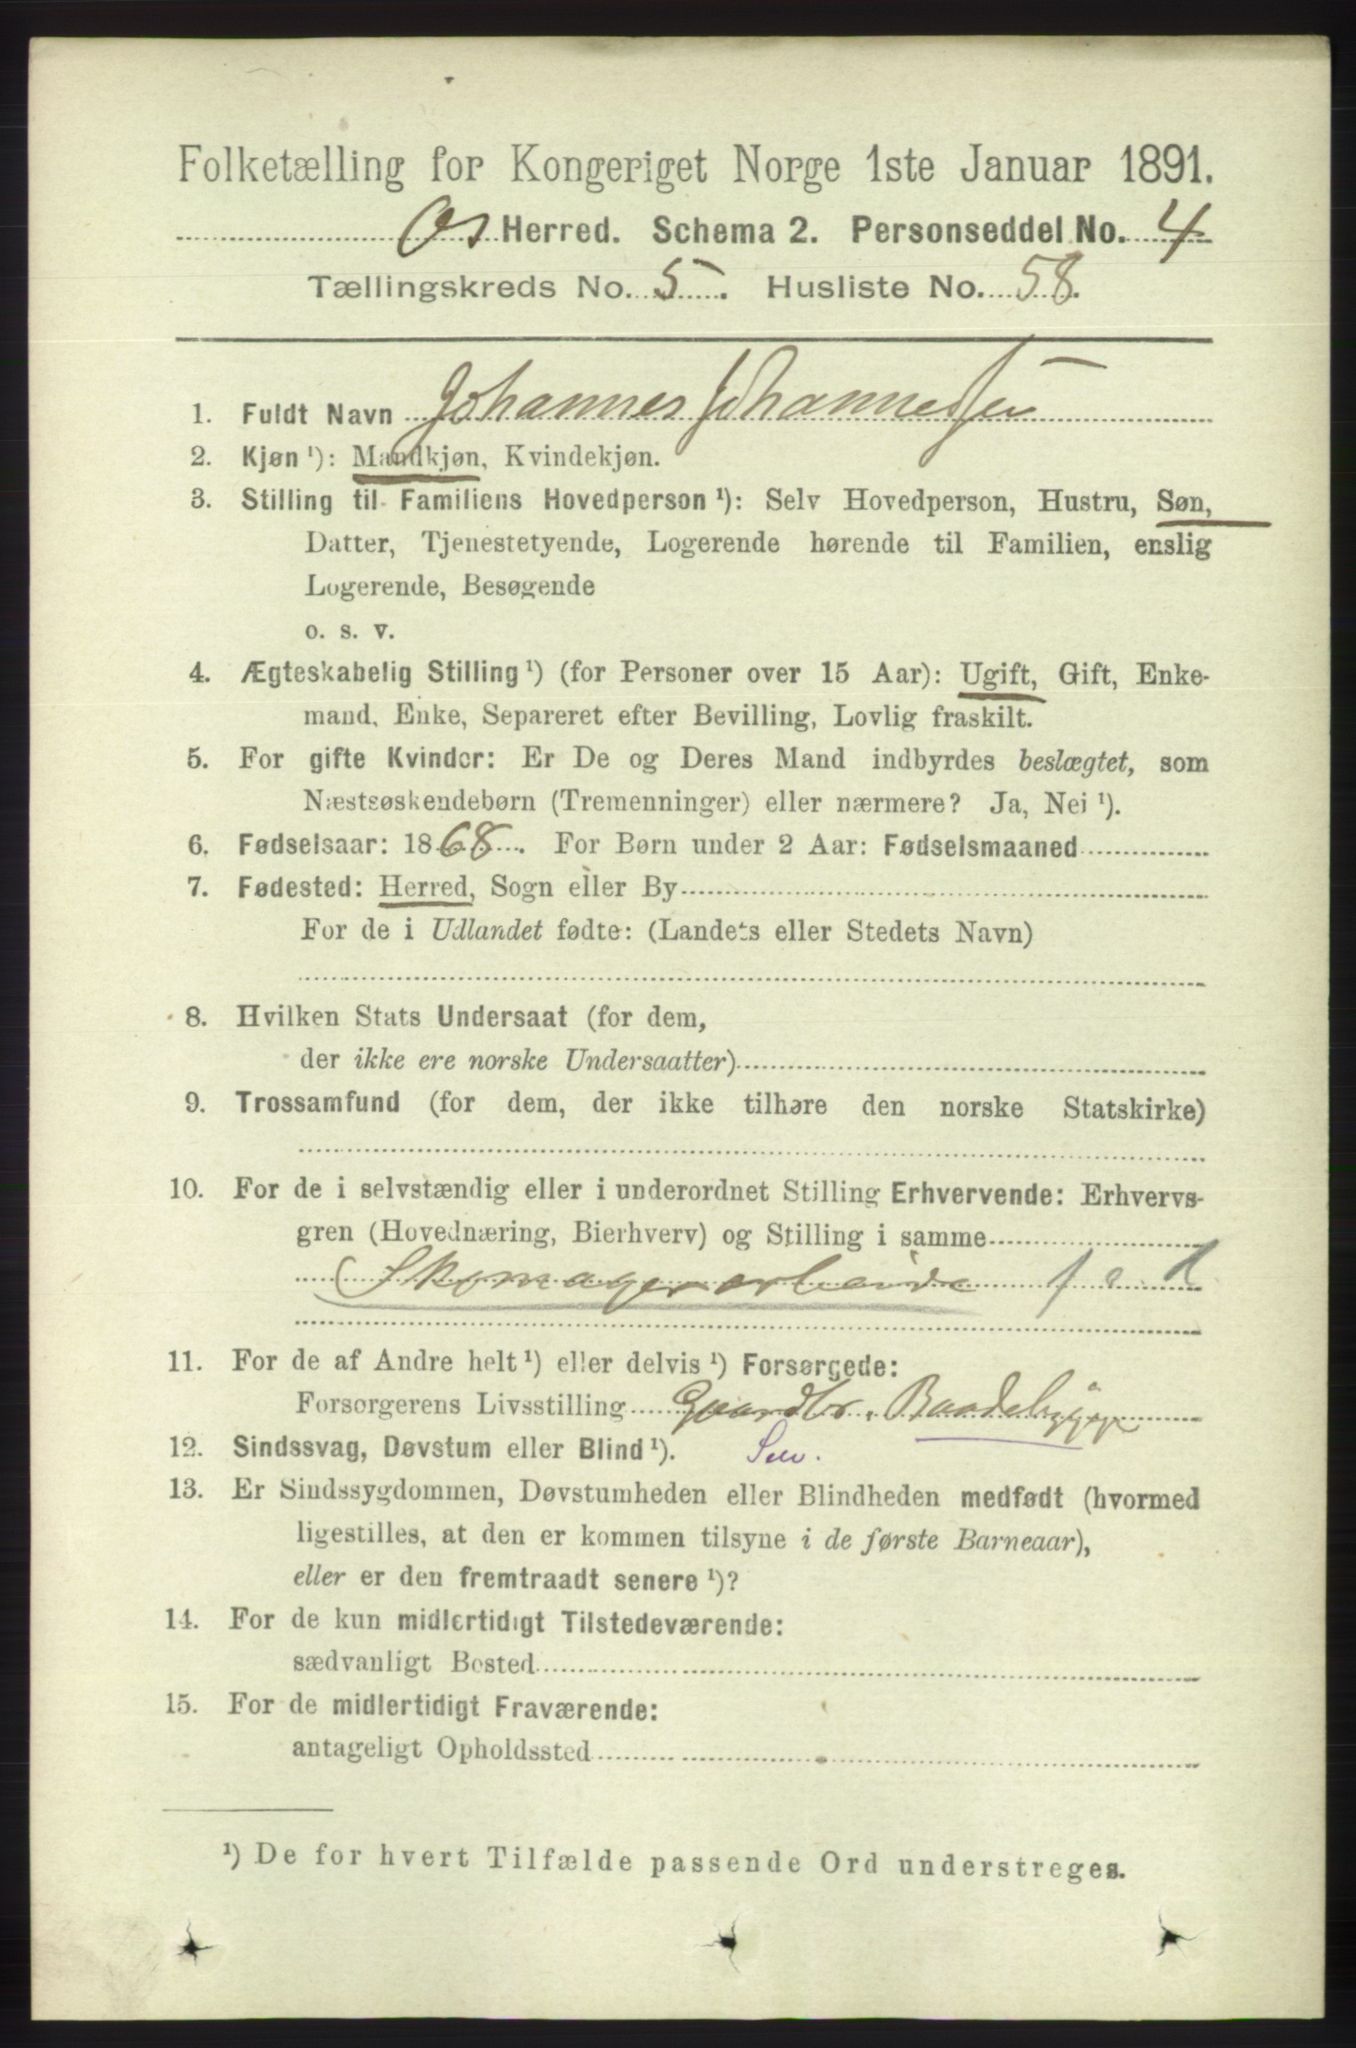 Folketælling for Kongeriget Norge 1ste Januar 1891.
Os Herred. Schema 2. Personseddel No. 4
Tællingskreds No. 5. Husliste No. 58.
1. Fuldt Navn Johannes Johannessen
2. Kjøn ¹): Mandkjøn, Kvindekjøn.
3. Stilling til Familiens Hovedperson ¹): Selv Hovedperson, Hustru, Søn,
Datter, Tjenestetyende, Logerende hørende til Familien, enslig
Logerende, Besøgende
o. s. v.
4. Ægteskabelig Stilling ¹) (for Personer over 15 Aar): Ugift, Gift, Enke-
mand, Enke, Separeret efter Bevilling, Lovlig fraskilt.
5. For gifte Kvinder: Er De og Deres Mand indbyrdes beslægtet, som
Næstsøskendebørn (Tremenninger) eller nærmere? Ja, Nei ¹).
6. Fødselsaar: 1868. For Børn under 2 Aar: Fødselsmaaned
7. Fødested: Herred, Sogn eller By
For de i Udlandet fødte: (Landets eller Stedets Navn)
8. Hvilken Stats Undersaat (for dem,
der ikke ere norske Undersaatter)
9. Trossamfund (for dem, der ikke tilhøre den norske Statskirke)
10. For de i selvstændig eller i underordnet Stilling Erhvervende: Erhvervs-
gren (Hovednæring, Bierhverv) og Stilling i samme
Skomagerarbeide
11. For de af Andre helt ¹) eller delvis ¹) Forsørgede:
Forsørgerens Livsstilling Gaardbr. Baadebygge
12. Sindssvag, Døvstum eller Blind ¹).
13. Er Sindssygdommen, Døvstumheden eller Blindheden medfødt (hvormed
ligestilles, at den er kommen tilsyne i de første Barneaar),
eller er den fremtraadt senere ¹)?
14. For de kun midlertidigt Tilstedeværende:
sædvanligt Bosted
15. For de midlertidigt Fraværende:
antageligt Opholdssted
¹) De for hvert Tilfælde passende Ord understreges.